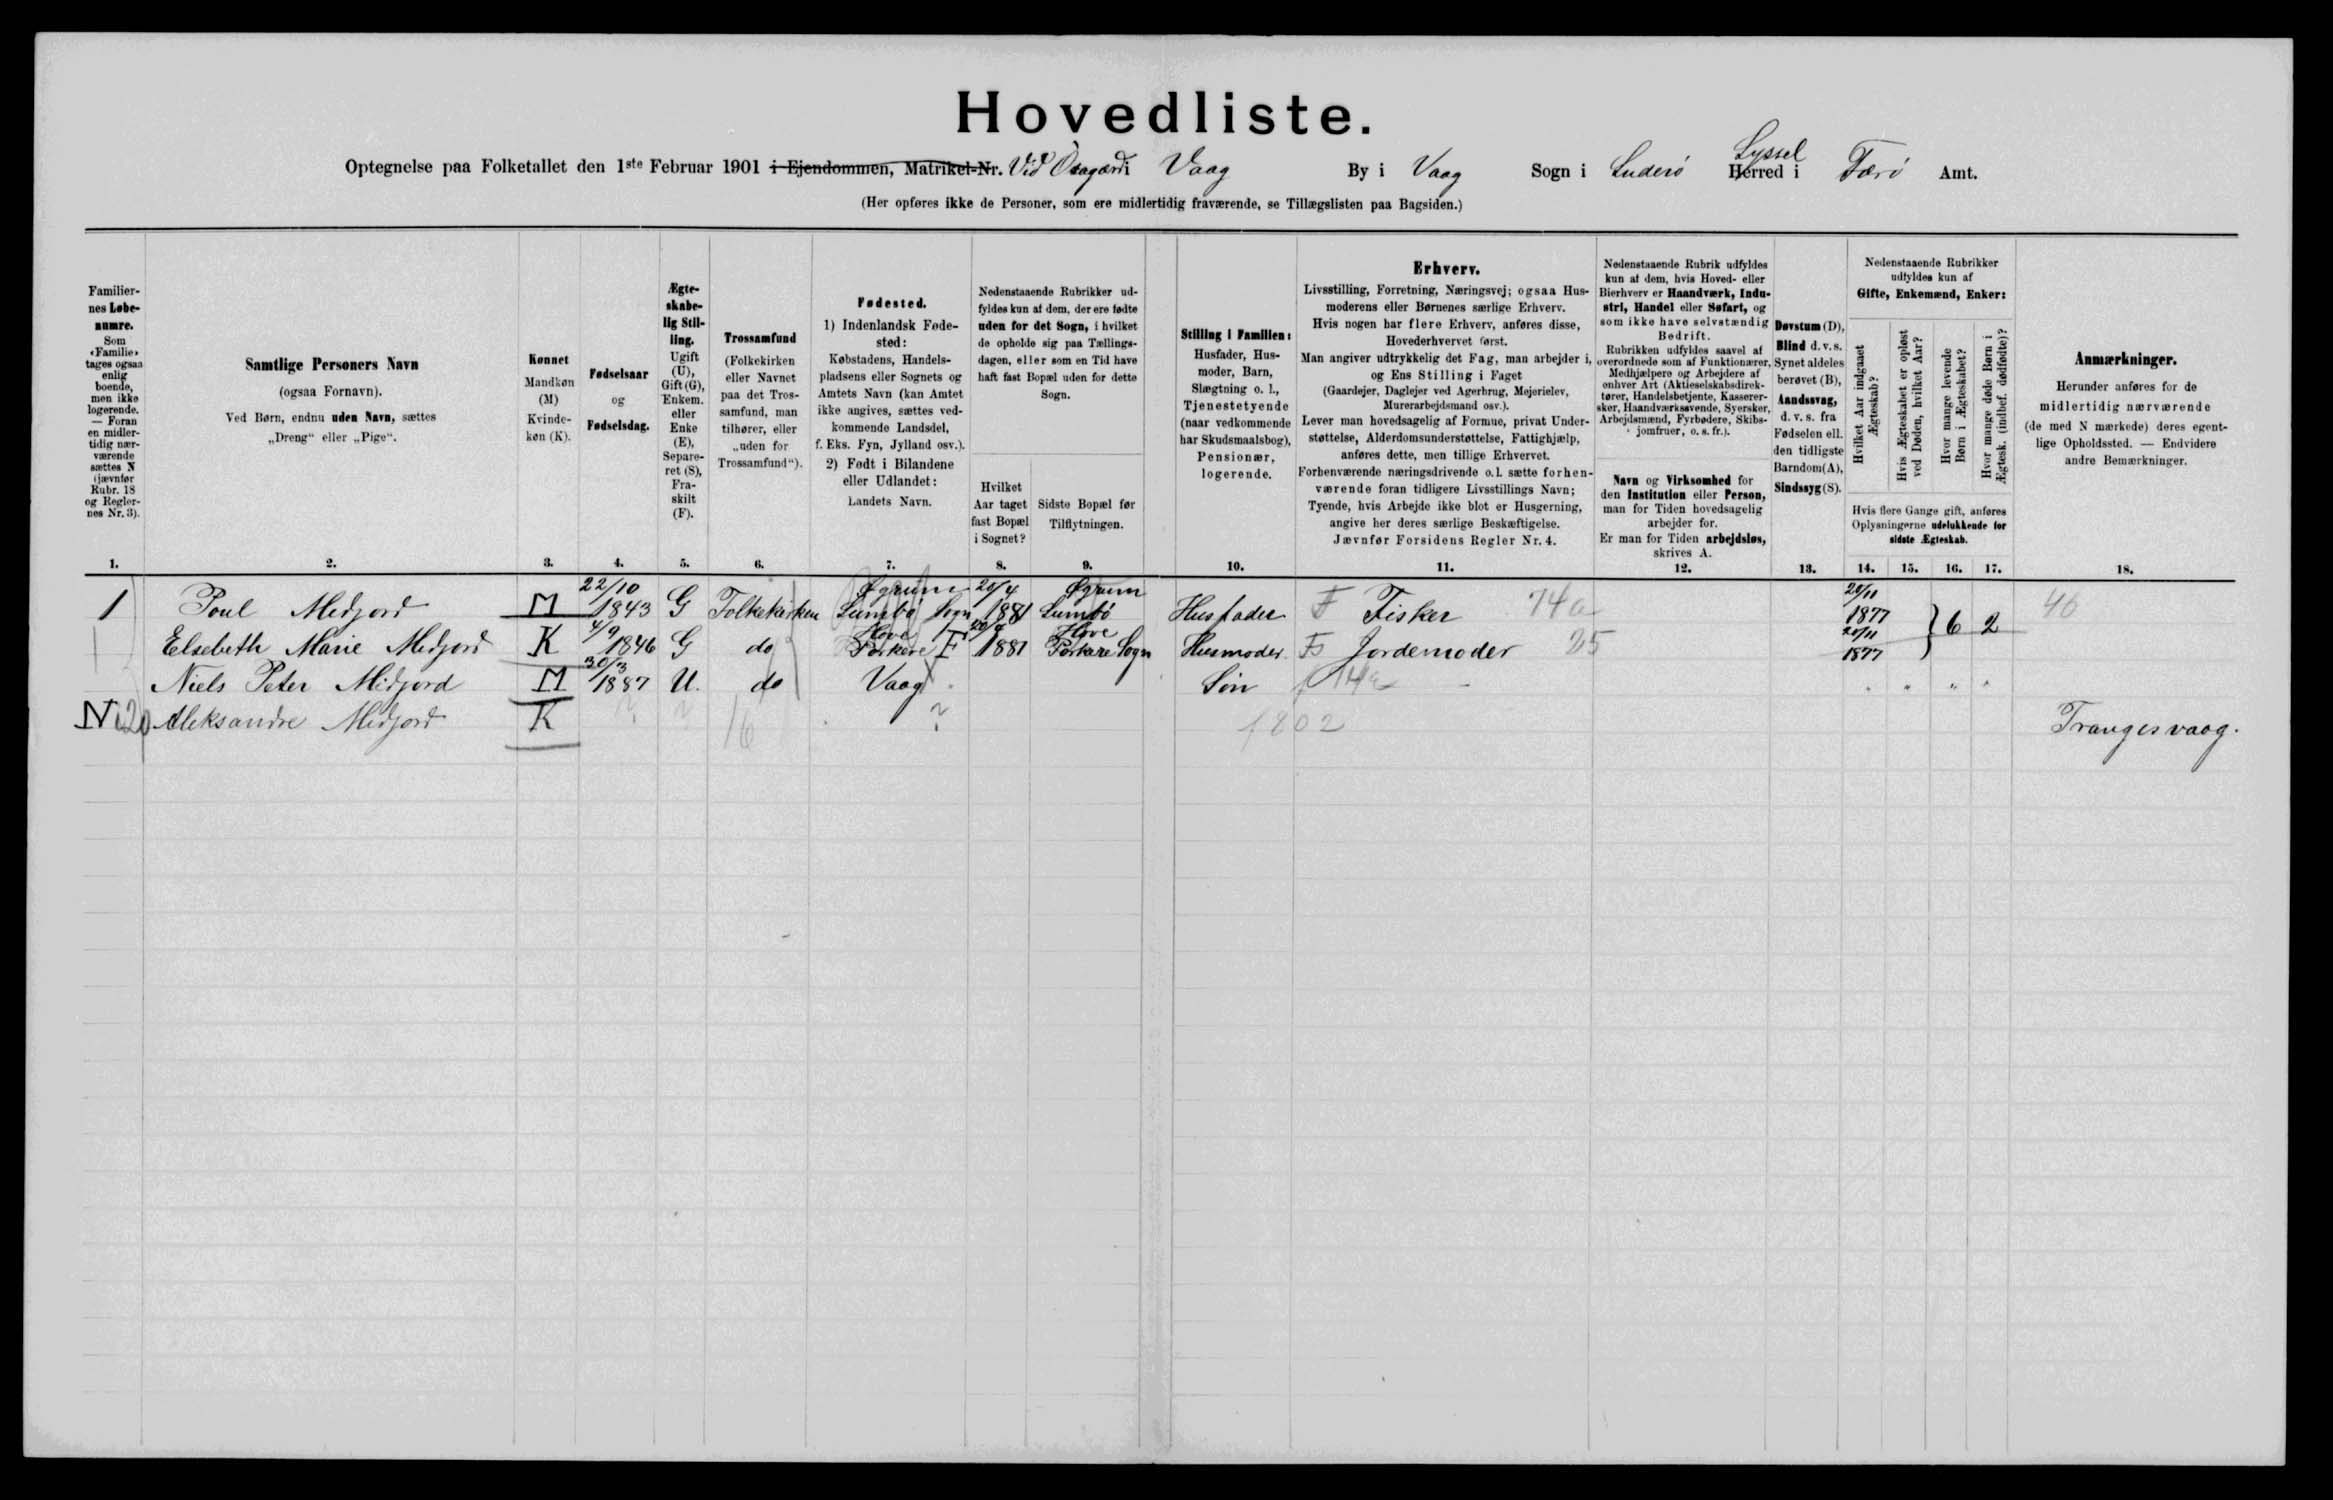 Hovedliste.
Optegnelse paa Folketallet den 1ste Februar 1901 i Ejendommen, Matrikel-Nr. Vid Vaag By i Vaag Sogn i Suderö Herred i Syssel Færö Amt.
(Her opføres ikke de Personer, som ere midlertidig fraværende, se Tillægslisten paa Bagsiden.)
Familier-
nes Løbe-
numre.
Som
«Familie»
tages ogsaa
enlig
boende,
men ikke
logerende.
— Foran
en midler-
tidig nær-
værende
sættes N
(jævnfør
Rubr. 18
og Regler-
nes Nr. 3).
1.
Samtlige Personers Navn
(ogsaa Fornavn).
Ved Børn, endnu uden Navn, sættes
„Dreng“ eller „Pige“.
2.
Kønnet
Mandkøn
(M)
Kvinde-
køn (K).
3.
Fødselsaar
og
Fødselsdag.
4.
Ægte-
skabe-
lig Stil-
ling.
Ugift
(U),
Gift (G),
Enkem.
eller
Enke
(E),
Separe-
ret (S),
Fra-
skilt
(F).
5.
Trossamfund
(Folkekirken
eller Navnet
paa det Tros-
samfund, man
tilhører, eller
„uden for
Trossamfund“).
6.
Fødested.
1) Indenlandsk Føde-
sted:
Købstadens, Handels-
pladsens eller Sognets og
Amtets Navn (kan Amtet
ikke angives, sættes ved-
kommende Landsdel,
f. Eks. Fyn, Jylland osv.).
2) Født i Bilandene
eller Udlandet:
Landets Navn.
7.
Nedenstaaende Rubrikker ud-
fyldes kun af dem, der ere fødte
uden for det Sogn, i hvilket
de opholde sig paa Tællings-
dagen, eller som en Tid have
haft fast Bopæl uden for dette
Sogn.
Hvilket
Aar taget
fast Bopæl
i Sognet?
8.
Sidste Bopæl før
Tilflytningen.
9.
Stilling i Familien:
Husfader, Hus-
moder, Barn,
Slægtning o. l.,
Tjenestetyende
(naar vedkommende
har Skudsmaalsbog),
Pensionær,
logerende.
10.
Erhverv.
Livsstilling, Forretning, Næringsvej; ogsaa Hus-
moderens eller Børnenes særlige Erhverv.
Hvis nogen har flere Erhverv, anføres disse,
Hovederhvervet først.
Man angiver udtrykkelig det Fag, man arbejder i,
og Ens Stilling i Faget
(Gaardejer, Daglejer ved Agerbrug, Mejerielev,
Murerarbejdsmand osv.).
Lever man hovedsagelig af Formue, privat Under-
støttelse, Alderdomsunderstøttelse, Fattighjælp,
anføres dette, men tillige Erhvervet.
Forhenværende næringsdrivende o. l. sætte forhen-
værende foran tidligere Livsstillings Navn;
Tyende, hvis Arbejde ikke blot er Husgerning,
angive her deres særlige Beskæftigelse.
Jævnfør Forsidens Regler Nr. 4.
11.
Nedenstaaende Rubrik udfyldes
kun af dem, hvis Hoved- eller
Bierhverv er Haandværk, Indu-
stri, Handel eller Søfart, og
som ikke have selvstændig
Bedrift.
Rubrikken udfyldes saavel af
overordnede som af Funktionærer,
Medhjælpere og Arbejdere af
enhver Art (Aktieselskabsdirek-
tører, Handelsbetjente, Kasserer-
sker, Haandværkssvende, Syersker,
Arbejdsmænd, Fyrbødere, Skibs-
jomfruer, o. s. fr.).
Navn og Virksomhed for
den Institution eller Person,
man for Tiden hovedsagelig
arbejder for.
Er man for Tiden arbejdsløs,
skrives A.
12.
Døvstum (D),
Blind d. v. s.
Synet aldeles
berøvet (B),
Aandssvag,
d. v. s. fra
Fødselen ell.
den tidligste
Barndom (A),
Sindssyg (S).
13.
Nedenstaaende Rubrikker
udfyldes kun af
Gifte, Enkemænd, Enker:
Hvilket Aar indgaaet
Ægteskab?
Hvis Ægteskabet er opløst
ved Døden, hvilket Aar?
Hvor mange levende
Børn i Ægteskabet?
Hvor mange døde Børn i
Ægtesk. (indbef. dødfødte)?
Hvis flere Gange gift, anføres
Oplysningerne udelukkende for
sidste Ægteskab.
14. 15. 16. 17.
Anmærkninger.
Herunder anføres for de
midlertidig nærværende
(de med N mærkede) deres egent-
lige Opholdssted. — Endvidere
andre Bemærkninger.
18.
1 Poul Midjord M 22/10 1843 G Folkekirken Øgrum Sumbø Sogn 20/4 1881 Øgrum Sumbø Husfader F Fisker 74a 20/11 1877 } 6 2 46
Elsebeth Marie Midjord K 4/9 1846 G do Hove Porkere F 20/4 1881 Hove Porkere Sogn Husmoder Fs Jordemoder 25 20/11 1877
Niels Peter Midjord M 30/3 1887 U. do Vaag Søn f 14a " " " "
N Aleksandre Midjord K ? ? 16 ? 1802 Trangesvaag.